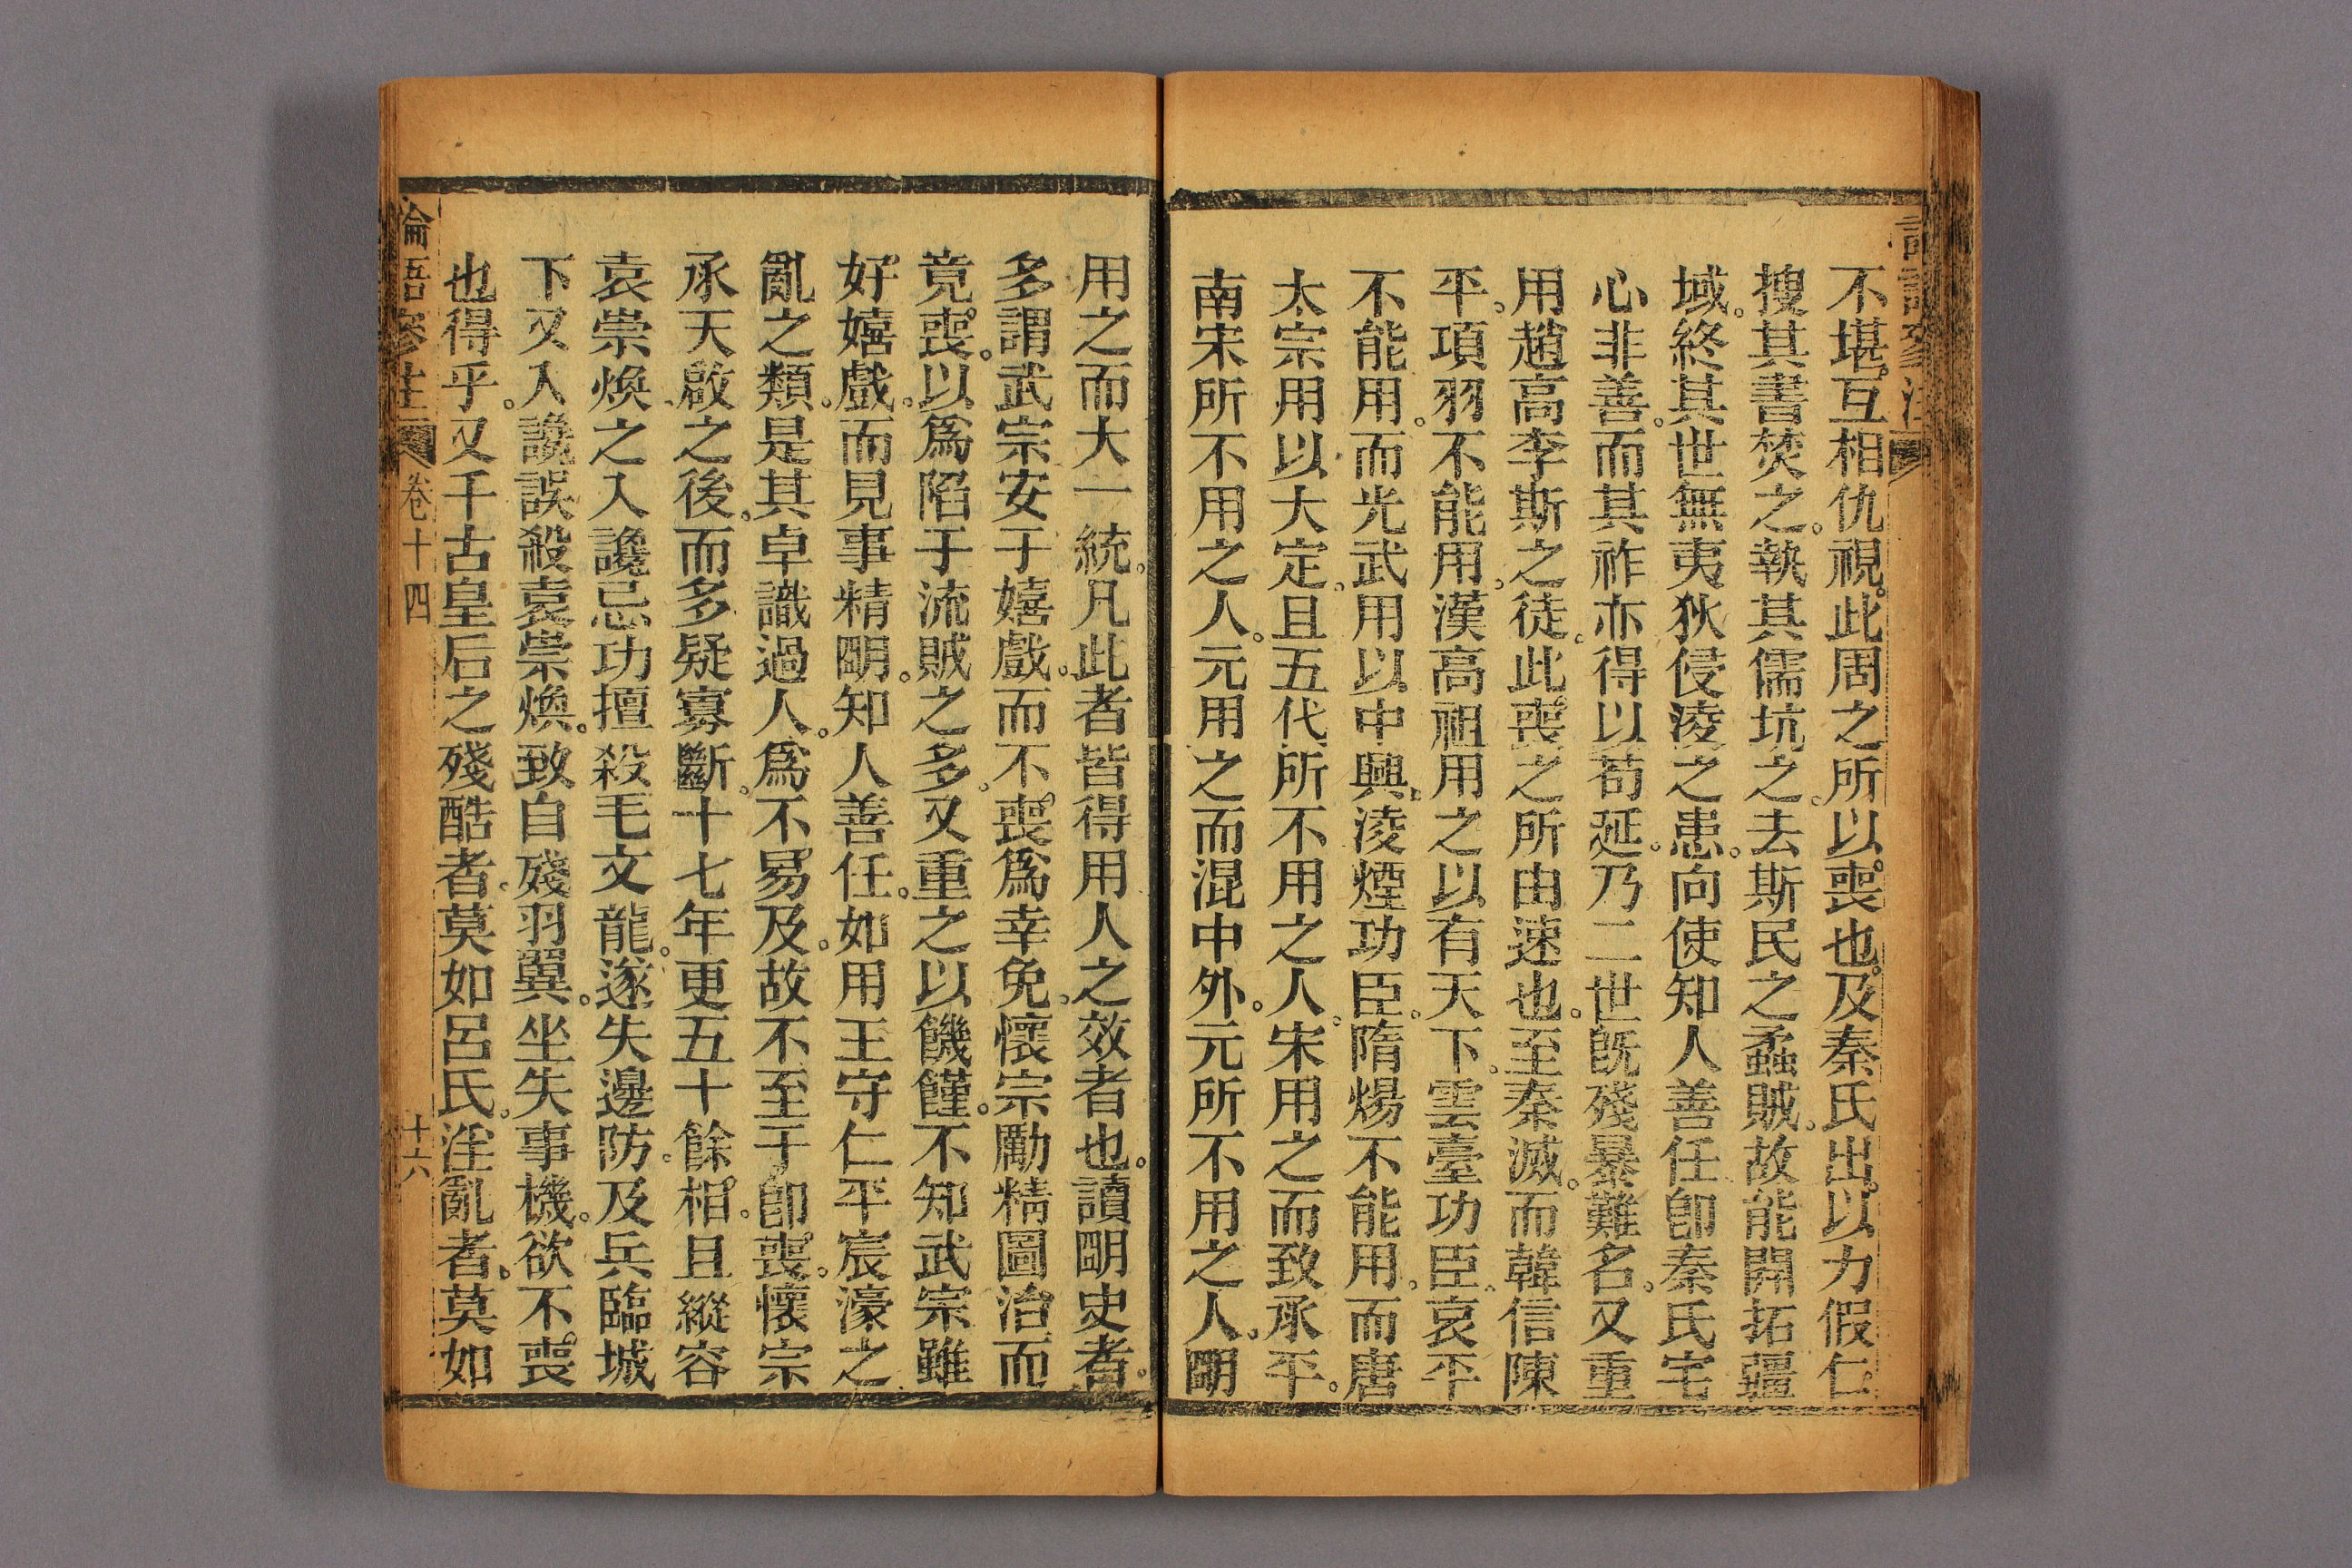 不堪。互相仇視。此周之所以喪也。及秦氏出。以力假仁
搜其書焚之。執其儒坑之。去斯民之蟊賊。故能開拓疆
域。終其世無夷狄侵淩之患。向使知人善任卽秦氏宅
心非善。而其祚亦得以苟延。乃二世旣殘暴難名。又重
用趙高李斯之徒。此喪之所由速也。至秦滅。而韓信陳
平。項羽不能用。漢高祖用之以有天下。雲臺功臣。哀平
不能用。而光武用以中興。淩煙功臣。隋煬不能用。而唐
太宗用以大定。且五代所不用之人。宋用之而致承平。
南宋所不用之人。元用之而混中外。元所不用之人。朙
用之而大一統。凡此者皆得用人之效者也。讀朙史者。
多謂武宗安于嬉戲。而不喪爲幸免。懷宗勵精圖治而
竟喪。以爲陷于流賊之多。又重之以饑饉。不知武宗雖
好嬉戲。而見事精朙。知人善任。如用王守仁平宸濠之
亂之類。是其卓識過人。爲不易及。故不至于卽喪。懷宗
承天啟之後。而多疑寡斷。十七年更五十餘相。且縱容
袁崇煥之入讒忌功擅殺毛文龍。遂失邊防。及兵臨城
下又入讒誤殺袁崇煥。致自殘羽翼。坐失事機。欲不喪
也得乎。又千古皇后之殘酷者。莫如呂氏。淫亂者。莫如
論語 卷十四 十六